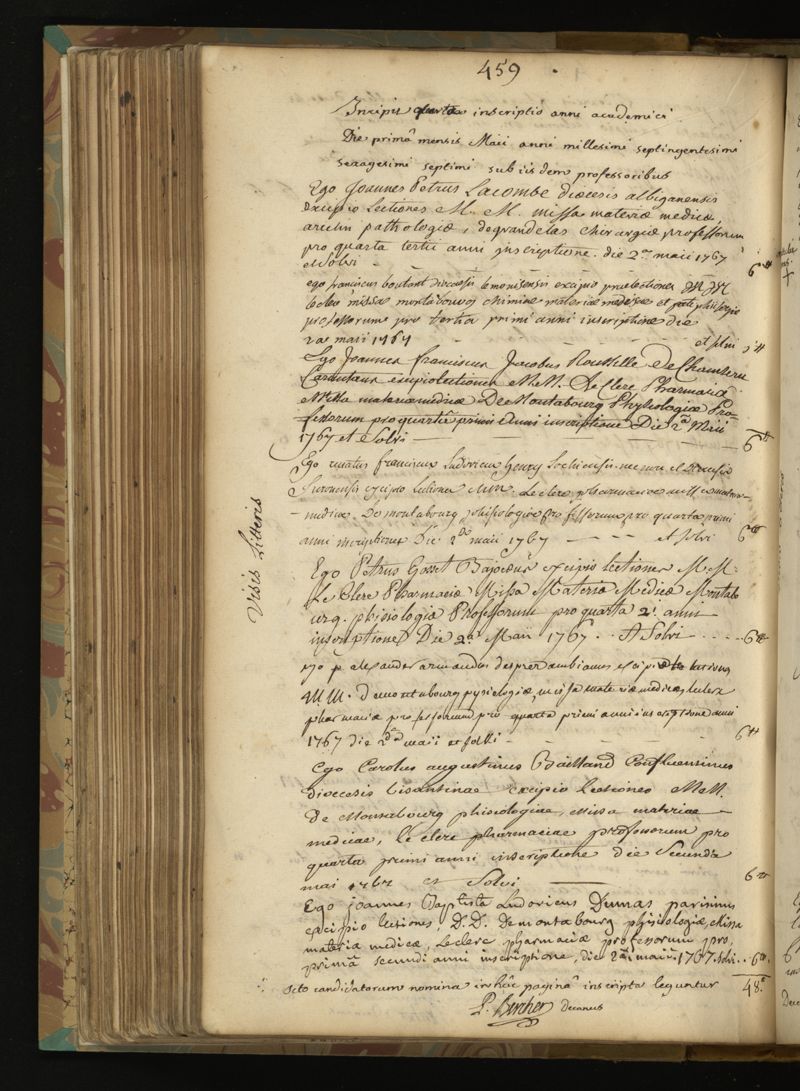 459
Incipit quarta inscriptio anni academici
Die primâ mensis Maii anni millesimi septingentesimi
sexagesimi septimi sub iisdem professoribus
Ego Joannes Petrus Lacombe diœcesis albiganensis
excipio Lectiones M. M. missa materiæ medicæ,
arcelin pathologiæ, degrandelas chirurgiæ professorum
pro quarta tertii anni inscriptione. die 2a maii 1767
et solvi - - - - 6tt
ego franciscus boutant diœcesis lemonisensis excipio praelectiones M M
leclerc missa montabourg chimiæ materiæ medicæ et phisiologiæ
professorum pro tertia primi anni inscriptione die
2as maii 1767 - - et solvi 6tt
Ego Joannes franciscus Jacobus Roussille De Chamseru
Carnutaeus excipio lectiones MM. Le Clerc Pharmaciæ
Missa materiæ medicæ De Montabourg Physiologiæ Pro-
fessorum pro quartâ primi anni inscriptione Die 2a Maii
1767 et Solvi - 6tt
Ego renatus franciscus Ludovicus henry
Turonensis excipio lectiones MM. Le clerc pharmaciæ missa materiæ
medicæ, De montabourg phisiologiæ professorum pro quarta primi
anni inscriptione Die 2da maii 1767 - - - - et solvi 6tt
Visis Litteris
Ego Petrus Gosset Bajocæus excipio lectiones M M.
Le Clerc Pharmaciæ Missa Materiæ Medicæ Montabo
urg. phisiologiæ Professorum pro quarta 2i anni
inscriptione Die 2a Maii 1767. . & Solvi . . . . 6tt
ego p. alexander armandus ambianus excipio lectiones
MM. demontabourg pysiologiæ, missa materiæ medicæ, leclerc
pharmaciæ professorum pro quarta primi anni inscriptione anni
1767 die 2da maii et solvi - - - - 6tt
Ego Carolus augustinus Baillard Confluensinus
diœcesis bisantinae excipio lectiones MM.
De Montabourg phisiologiae, Missa materiae
medicae, le clerc pharmaciae professorum pro
quarta primi anni inscriptione die Secunda
mai 1767 et Solvi - 6tt
Ego joannes Baptista Ludovicus Dumas parisinus
excipio lectiones, D.D. Demontabourg physiologiæ, Missa
materia medicæ, Leclerc pharmaciæ professorum pro,
primâ secundi anni inscriptione, die 2a maii. 1767. solvi. . 6tt.
octo candidatorum nomina in hâc paginâ inscripta leguntur 48tt
P. Bercher decanus